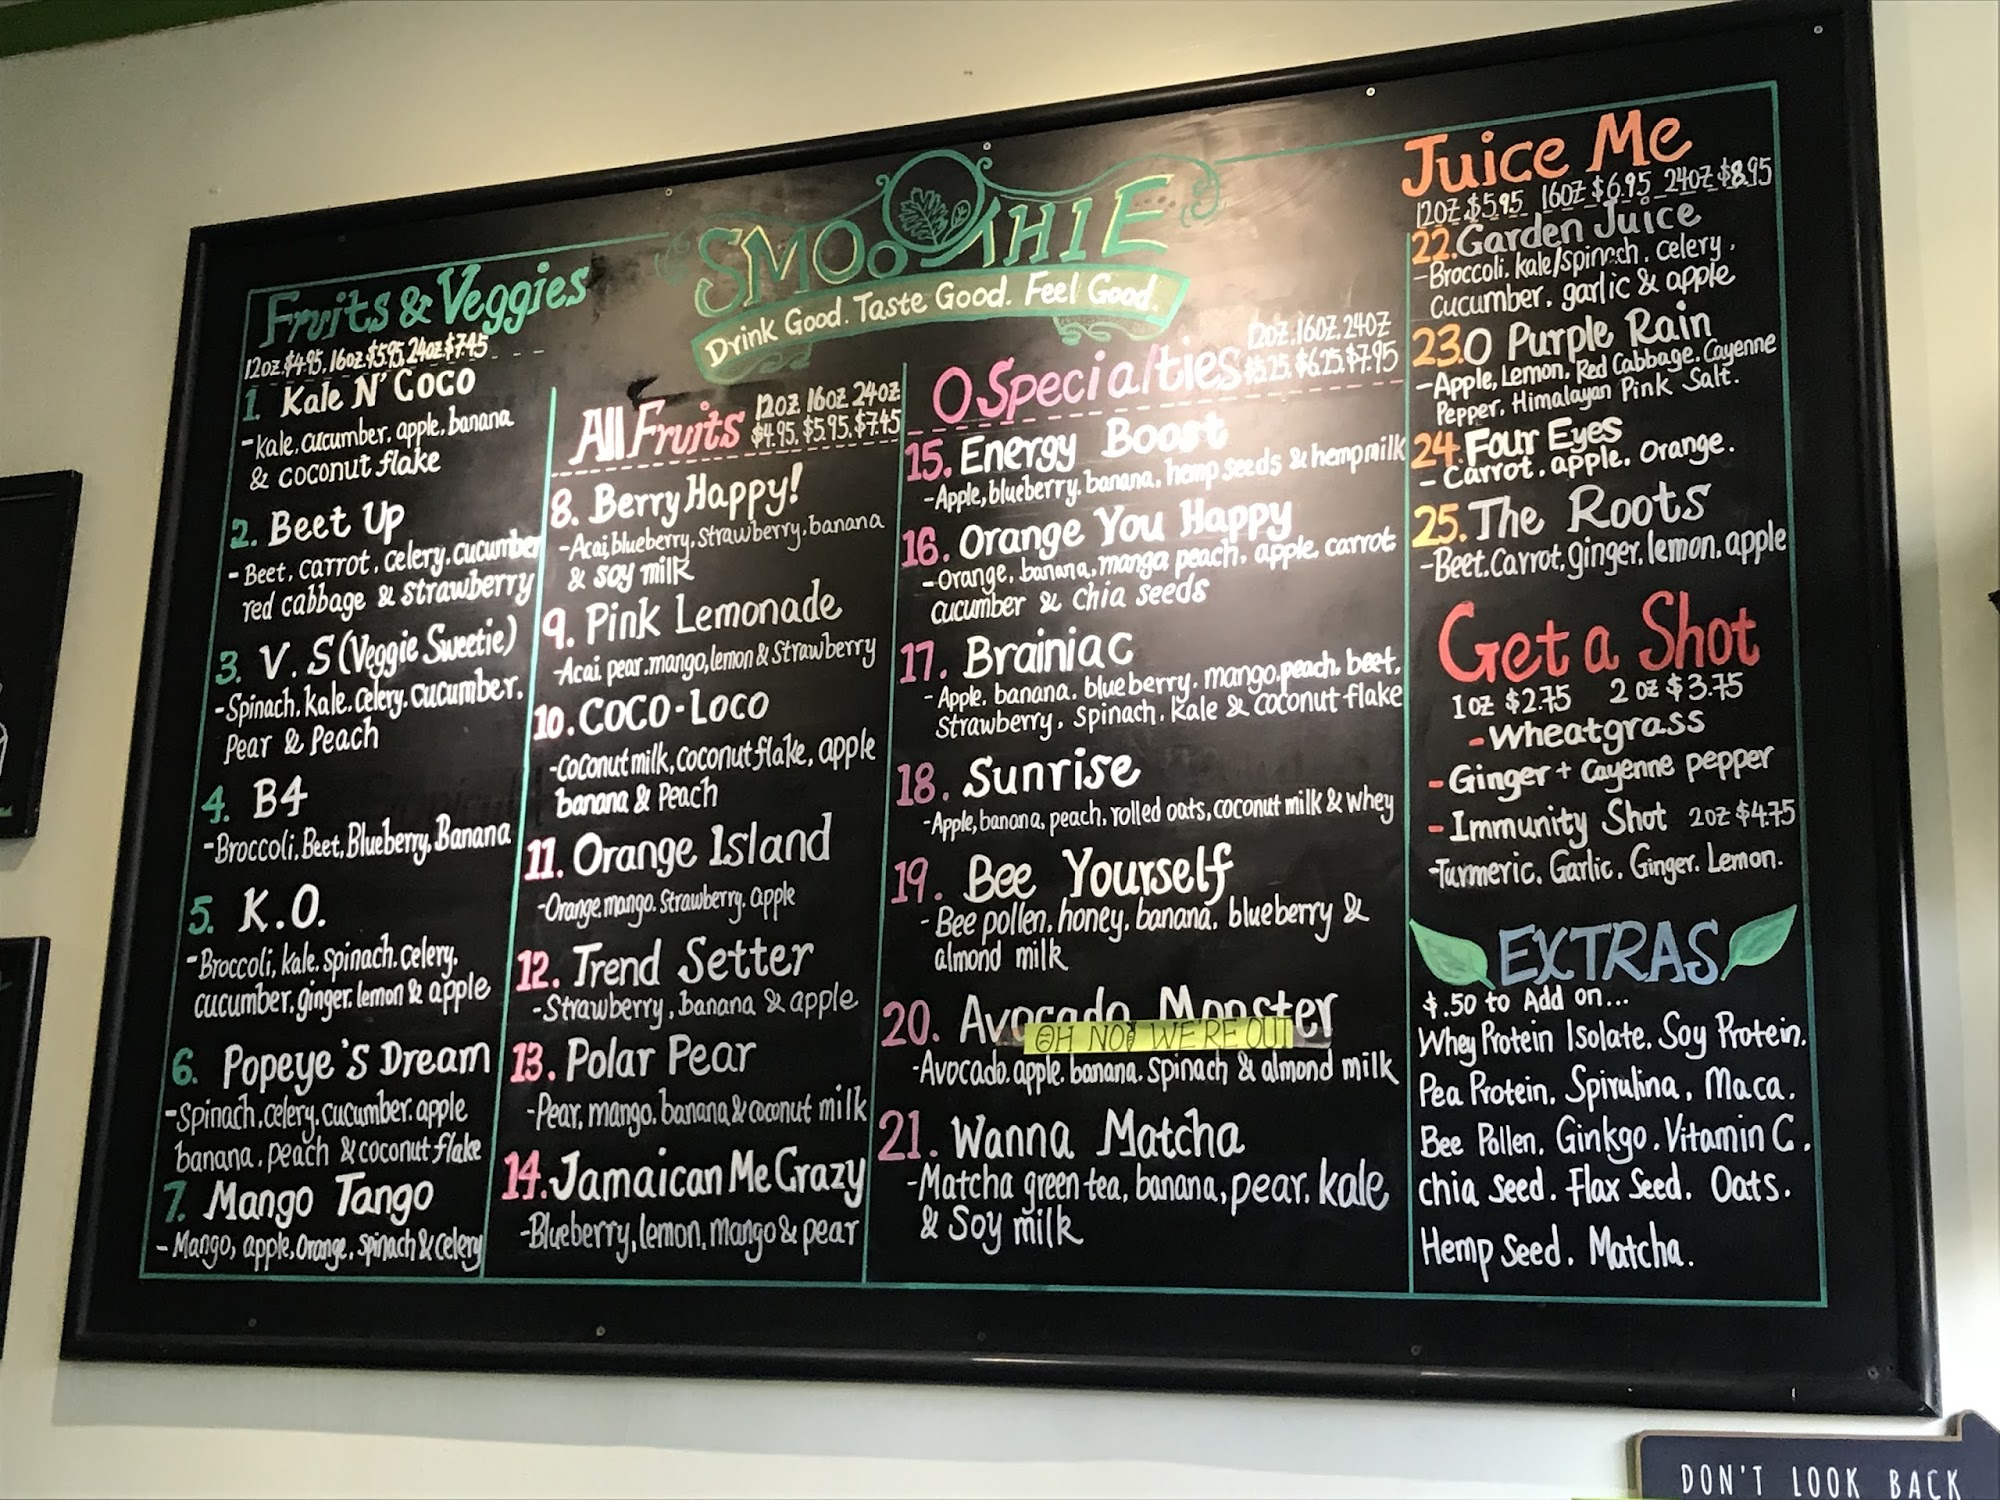 SMOOTHIE
Drink Good. Taste Good. Feel Good.
Fruits & Veggies
12oz.$4.95, 16oz.$5.95, 24oz.$7.45
1. Kale N' Coco
-kale, cucumber, apple, banana
& coconut flake
2. Beet Up
-Beet, carrot, celery, cucumber
red cabbage & strawberry
3. V.S (Veggie Sweetie)
-Spinach, kale, celery, cucumber,
Pear & Peach
4. B4
-Broccoli, Beet, Blueberry, Banana
5. K.O.
-Broccoli, kale, spinach, celery,
cucumber, ginger, lemon & apple
6. Popeye's Dream
-Spinach, celery, cucumber, apple
banana, peach & coconut flake
7. Mango Tango
-Mango, apple, orange, spinach & celery
All Fruits
12oz 16oz 24oz
$4.95, $5.95, $7.45
8. Berry Happy!
-Acai, blueberry, Strawberry, banana
& soy milk
9. Pink Lemonade
-Acai, pear, mango, lemon & Strawberry
10. COCO-LOCO
-Coconut milk, coconut flake, apple
banana & Peach
11. Orange Island
-Orange, mango, Strawberry, apple
12. Trend Setter
-Strawberry, banana & apple
13. Polar Pear
-Pear, mango, banana & coconut milk
14. Jamaican Me Crazy
-Blueberry, lemon, mango & pear
O Specialties
12oz. 16oz. 24oz
$5.25, $6.25, $7.95
15. Energy Boost
-Apple, blueberry, banana, hemp seeds & hempmilk
16. Orange You Happy
-Orange, banana, mango, peach, apple, carrot,
cucumber & chia seeds
17. Brainiac
-Apple, banana, blueberry, mango, peach, beet,
Strawberry, spinach, kale & coconut flake
18. Sunrise
-Apple, banana, peach, rolled oats, coconut milk & whey
19. Bee Yourself
-Bee pollen, honey, banana, blueberry &
almond milk
20. Avocado Monster
OH NO! WE'RE OUT
-Avocado, apple, banana, spinach & almond milk
21. Wanna Matcha
-Matcha green tea, banana, pear, kale
& Soy milk
Juice Me
12oz $5.95 16oz $6.95 24oz $8.95
22. Garden Juice
-Broccoli, kale/spinach, celery,
cucumber, garlic & apple
23. O Purple Rain
-Apple, Lemon, Red Cabbage, Cayenne
Pepper, Himalayan Pink Salt.
24. Four Eyes
-Carrot, apple, orange.
25. The Roots
-Beet, Carrot, ginger, lemon, apple
Get a Shot
1oz $2.75 2oz $3.75
-Wheatgrass
-Ginger + Cayenne pepper
-Immunity Shot 2oz $4.75
-Turmeric, Garlic, Ginger, Lemon.
EXTRAS
$.50 to Add on...
Whey Protein Isolate, Soy Protein,
Pea Protein, Spirulina, Maca,
Bee Pollen, Ginkgo, Vitamin C,
chia seed, Flax Seed, Oats,
Hemp seed, Matcha.
DON'T LOOK BACK